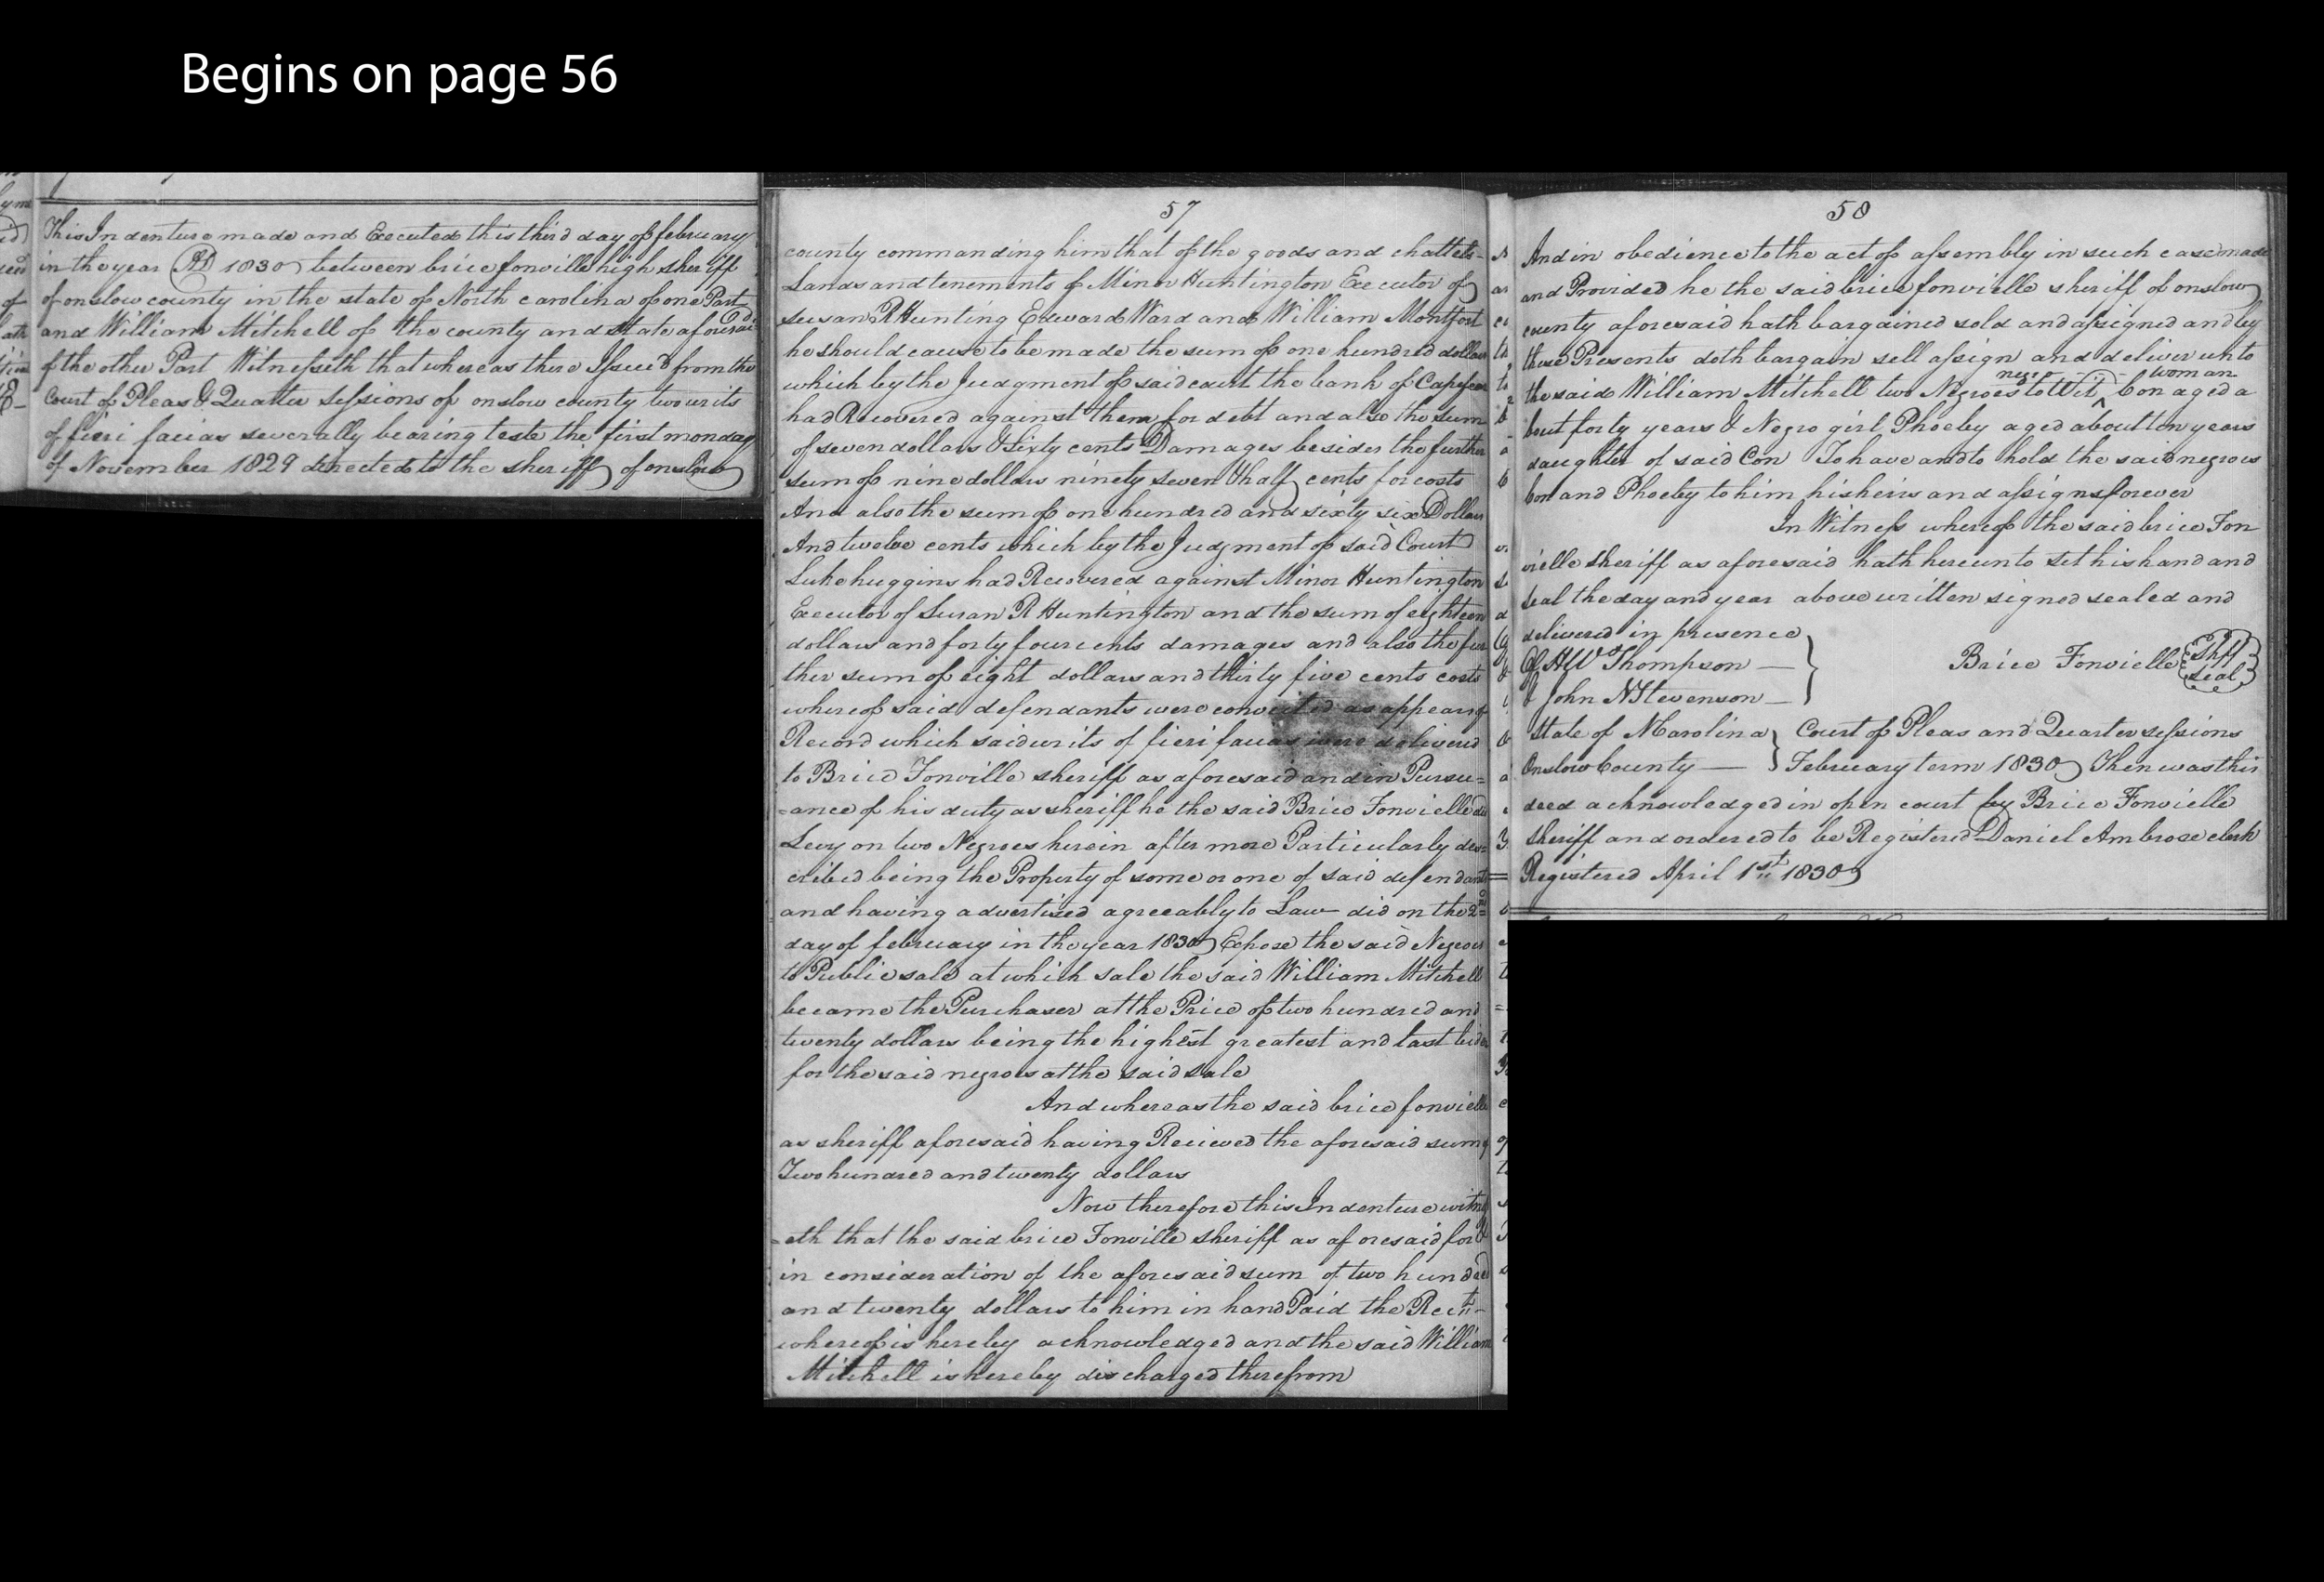 Begins on page 56
This Indenture made and Executed this third day of february
in the year AD 1830 between brice fonville high sheriff
of onslow county in the state of North carolina of one Part
and William Mitchell of the county and state aforesaid
of the other Part Witnesseth that whereas there Issued from the
Court of Pleas & Quatter sessions of onslow county two writs
of fieri facias severally bearing teste the first monday
of November 1829 directed to the sheriff of onslow
57
county commanding him that of the goods and chattels
Lands and tenements of Minor Huntington Executor of
susan R Hunting Edward Ward and William Montfort
he should cause to be made the sum of one hundred dollars
which by the Judgment of said court the bank of Capefear
had Recovered against them for debt and also the sum
of seven dollars & Sixty cents Damages besides the further
sum of nine dollars ninety seven & half cents for costs
And also the sum of one hundred and sixty six Dollars
And twelve cents which by the Judgment of said Court
Luke huggins had Recovered against Minor Huntington
Executor of Susan R Huntington and the sum of eighteen
dollars and forty four cents damages and also the fur
ther sum of eight dollars and thirty five cents costs
whereof said defendants were convicted as appears of
Record which said writs of fieri facias were delivered
to Brice Fonville sheriff as aforesaid and in Pursu=
=ance of his duty as sheriff he the said Brice Fonvielle did
Levy on two Negroes herein after more Particularly des=
cribed being the Property of some or one of said defendants
and having advertised agreeably to Law did on the 2nd
day of february in the year 1830 Expose the said Negroes
to Public sale at which sale the said William Mitchell
became the Purchaser at the Price of two hundred and
twenty dollars being the highest greatest and last bider
for the said negroes at the said sale
And whereas the said brice fonvielle
as sheriff aforesaid having Recieved the aforesaid sum of
Two hundred and twenty dollars
Now therefore this Indenture witness
=eth that the said brice Fonville sheriff as aforesaid for &
in consideration of the aforesaid sum of two hundred
and twenty dollars to him in hand Paid the Rect
whereof is hereby acknowledged and the said William
Mitchell is hereby discharged therefrom
58
And in obedience to the act of assembly in such case made
and Provided he the said brice fonvielle sheriff of onslow
county aforesaid hath bargained sold and assigned and by
these Presents doth bargain sell assign and deliver unto
negro woman
the said William Mitchell two Negroes to Wit ^ Con aged a
bout forty years & Negro girl Phoeby aged about ten years
daughter of said Con To have and to hold the said negroes
Con and Phoeby to him his heirs and assigns forever
In Witness whereof the said brice Fon
vielle sheriff as aforesaid hath hereunto set his hand and
seal the day and year above written signed sealed and
delivered in presence
Of H W Thompson
of John N Stevenson
Brice Fonvielle Shff seal
State of N Carolina Court of Pleas and Quarter sessions
Onslow County February term 1830 Then was this
deed acknowledged in open court by Brice Fonvielle
sheriff and ordered to be Registered Daniel Ambrose clerk
Registered April 1st 1830